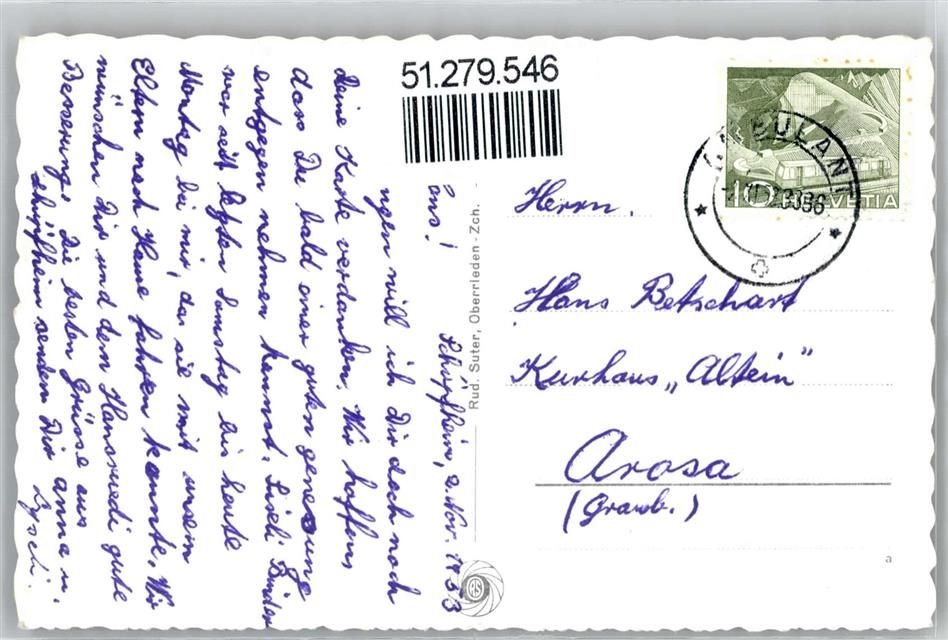 51.279.546
Schüpfheim, 2. Nov. 1953
uns!
ngen will ich Dir doch noch
deine Karte verdanken. Wir hoffen,
dass Du bald einer guten genesung
entgegen nehmen kannst. Liseli Binder
war seit letzten Samstag bis heute
Montag bei mir, da sie mit unsern
Eltern nach Hause fahren konnte. Wir
wünschen Dir und dem Hansruedi gute
Besserung. Die besten Grüsse aus
Schüpfheim senden Dir Anna u.
Lyseli.
Rud. Suter, Oberrieden - Zch.
AMBULANT
10
HELVETIA
Herrn.
Hans Betschart
Kurhaus „Altein"
Arosa
(Graub.)
a